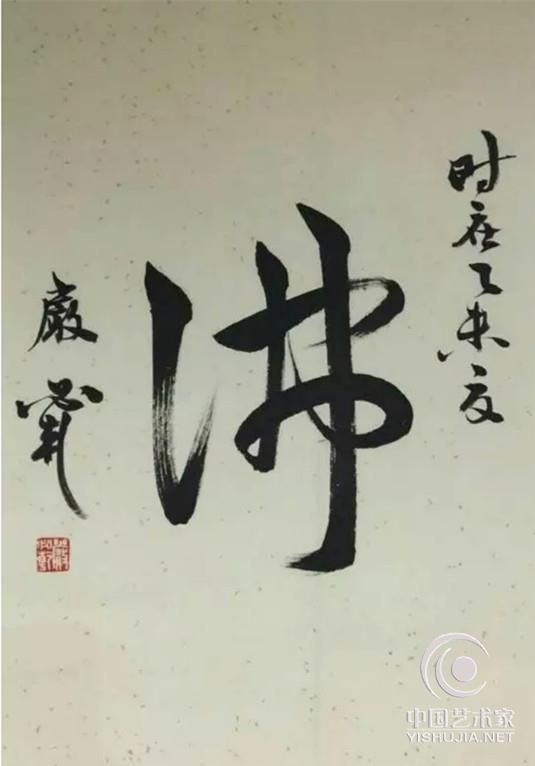 时在乙未夏
佛
严
中国艺术家
YISHUJIA.NET